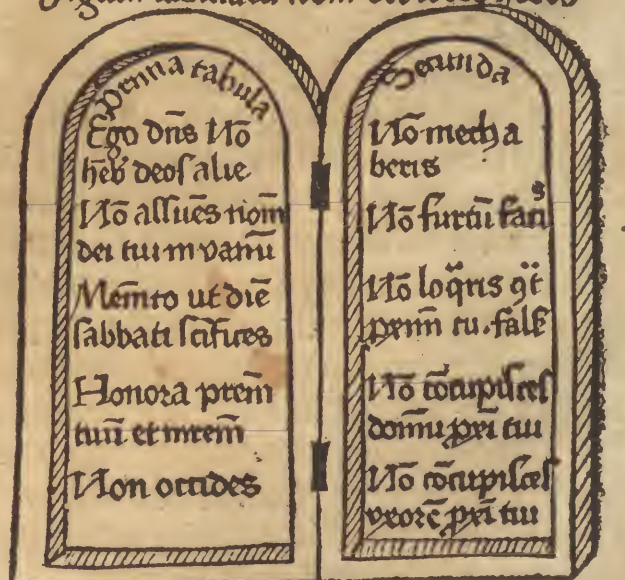 Prima tabula
Ego dn̄s Nō
hēb deos alie
Nō assūes nom̄
dei tui in vanū
Mem̄to ut diē
sabbati sc̄ifices
Honora prēm
tuū et mrēm
Non occides
Secunda
Nō mecha
beris
Nō furtū faciˢ
Nō loqͣris ꝯͭ
ꝓxim̄ tu fals̄
Nō cōcupisces
domū ꝓxi tui
Nō cōcupisces
vxorē ꝓxi tui